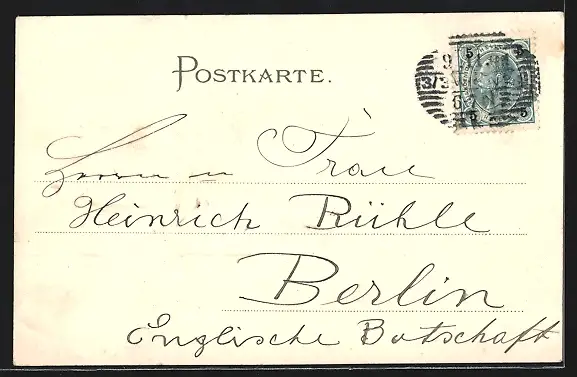 POSTKARTE.
5 5
3/1
5 5
Herrn u Frau
Heinrich Rühle
Berlin
Englische Botschaft